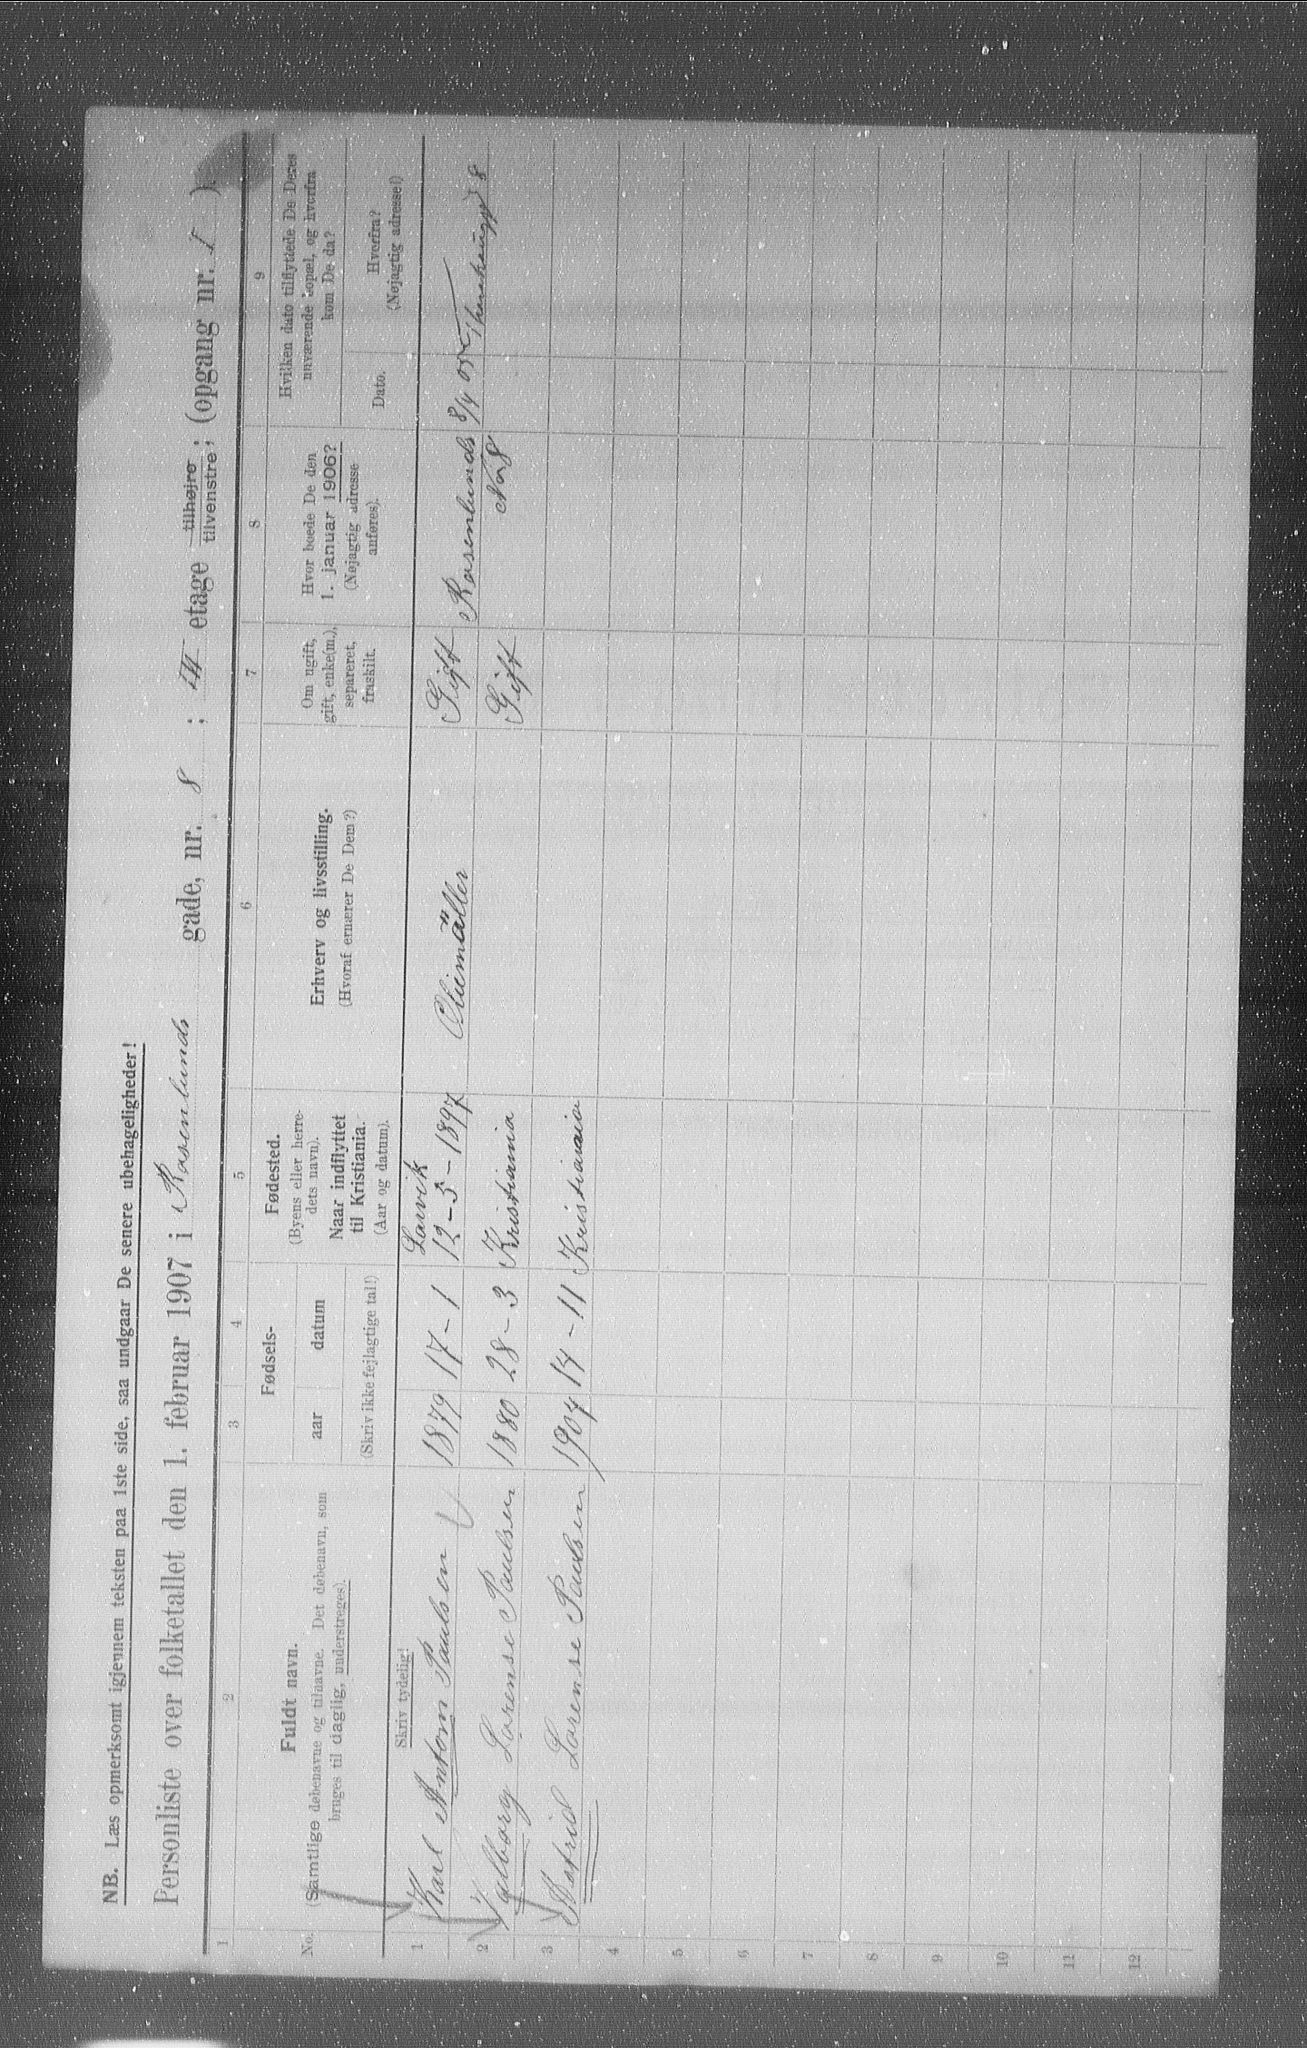 NB. Læs opmerksomt igjennem teksten paa 1ste side, saa undgaar De senere ubehageligheder!
Personliste over folketallet den 1. februar 1907 i Rosenlunds gade, nr. 8 ; III etage tilhøjre; tilvenstre; (opgang nr. 1 ).
1 2 3 4 5 6 7 8 9
No.
Fuldt navn.
(Samtlige døbenavne og tilnavne. Det døbenavn, som
bruges til daglig, understreges).
Skriv tydelig!
Fødsels-
aar datum
(Skriv ikke fejlagtige tal!)
Fødested.
(Byens eller herre-
dets navn).
Naar indflyttet
til Kristiania.
(Aar og datum).
Erhverv og livsstilling.
(Hvoraf ernærer De Dem?)
Om ugift,
gift, enke(m.),
separeret,
fraskilt.
Hvor boede De den
1. januar 1906?
(Nøjagtig adresse
anføres).
Hvilken dato tilflyttede De Deres
nuværende bopæl, og hvorfra
kom De da?
Dato.
Hvorfra?
(Nøjagtig adresse!)
1 Karl Anton Paulsen 1879 17-1 Larvik
12-5-1897 Oliemöller Gift Rosenlunds 8/4 05
No 8 8
2 Valborg Lorense Paulsen 1880 28-3 Kristiania Gift
3 Astrid Lorense Paulsen 1904 14-11 Kristiania
4
5
6
7
8
9
10
11
12